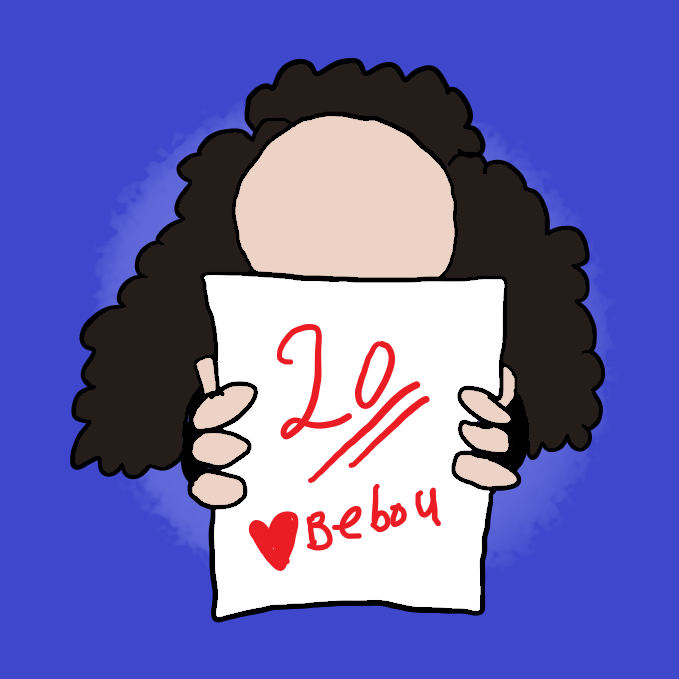 20
Bebou